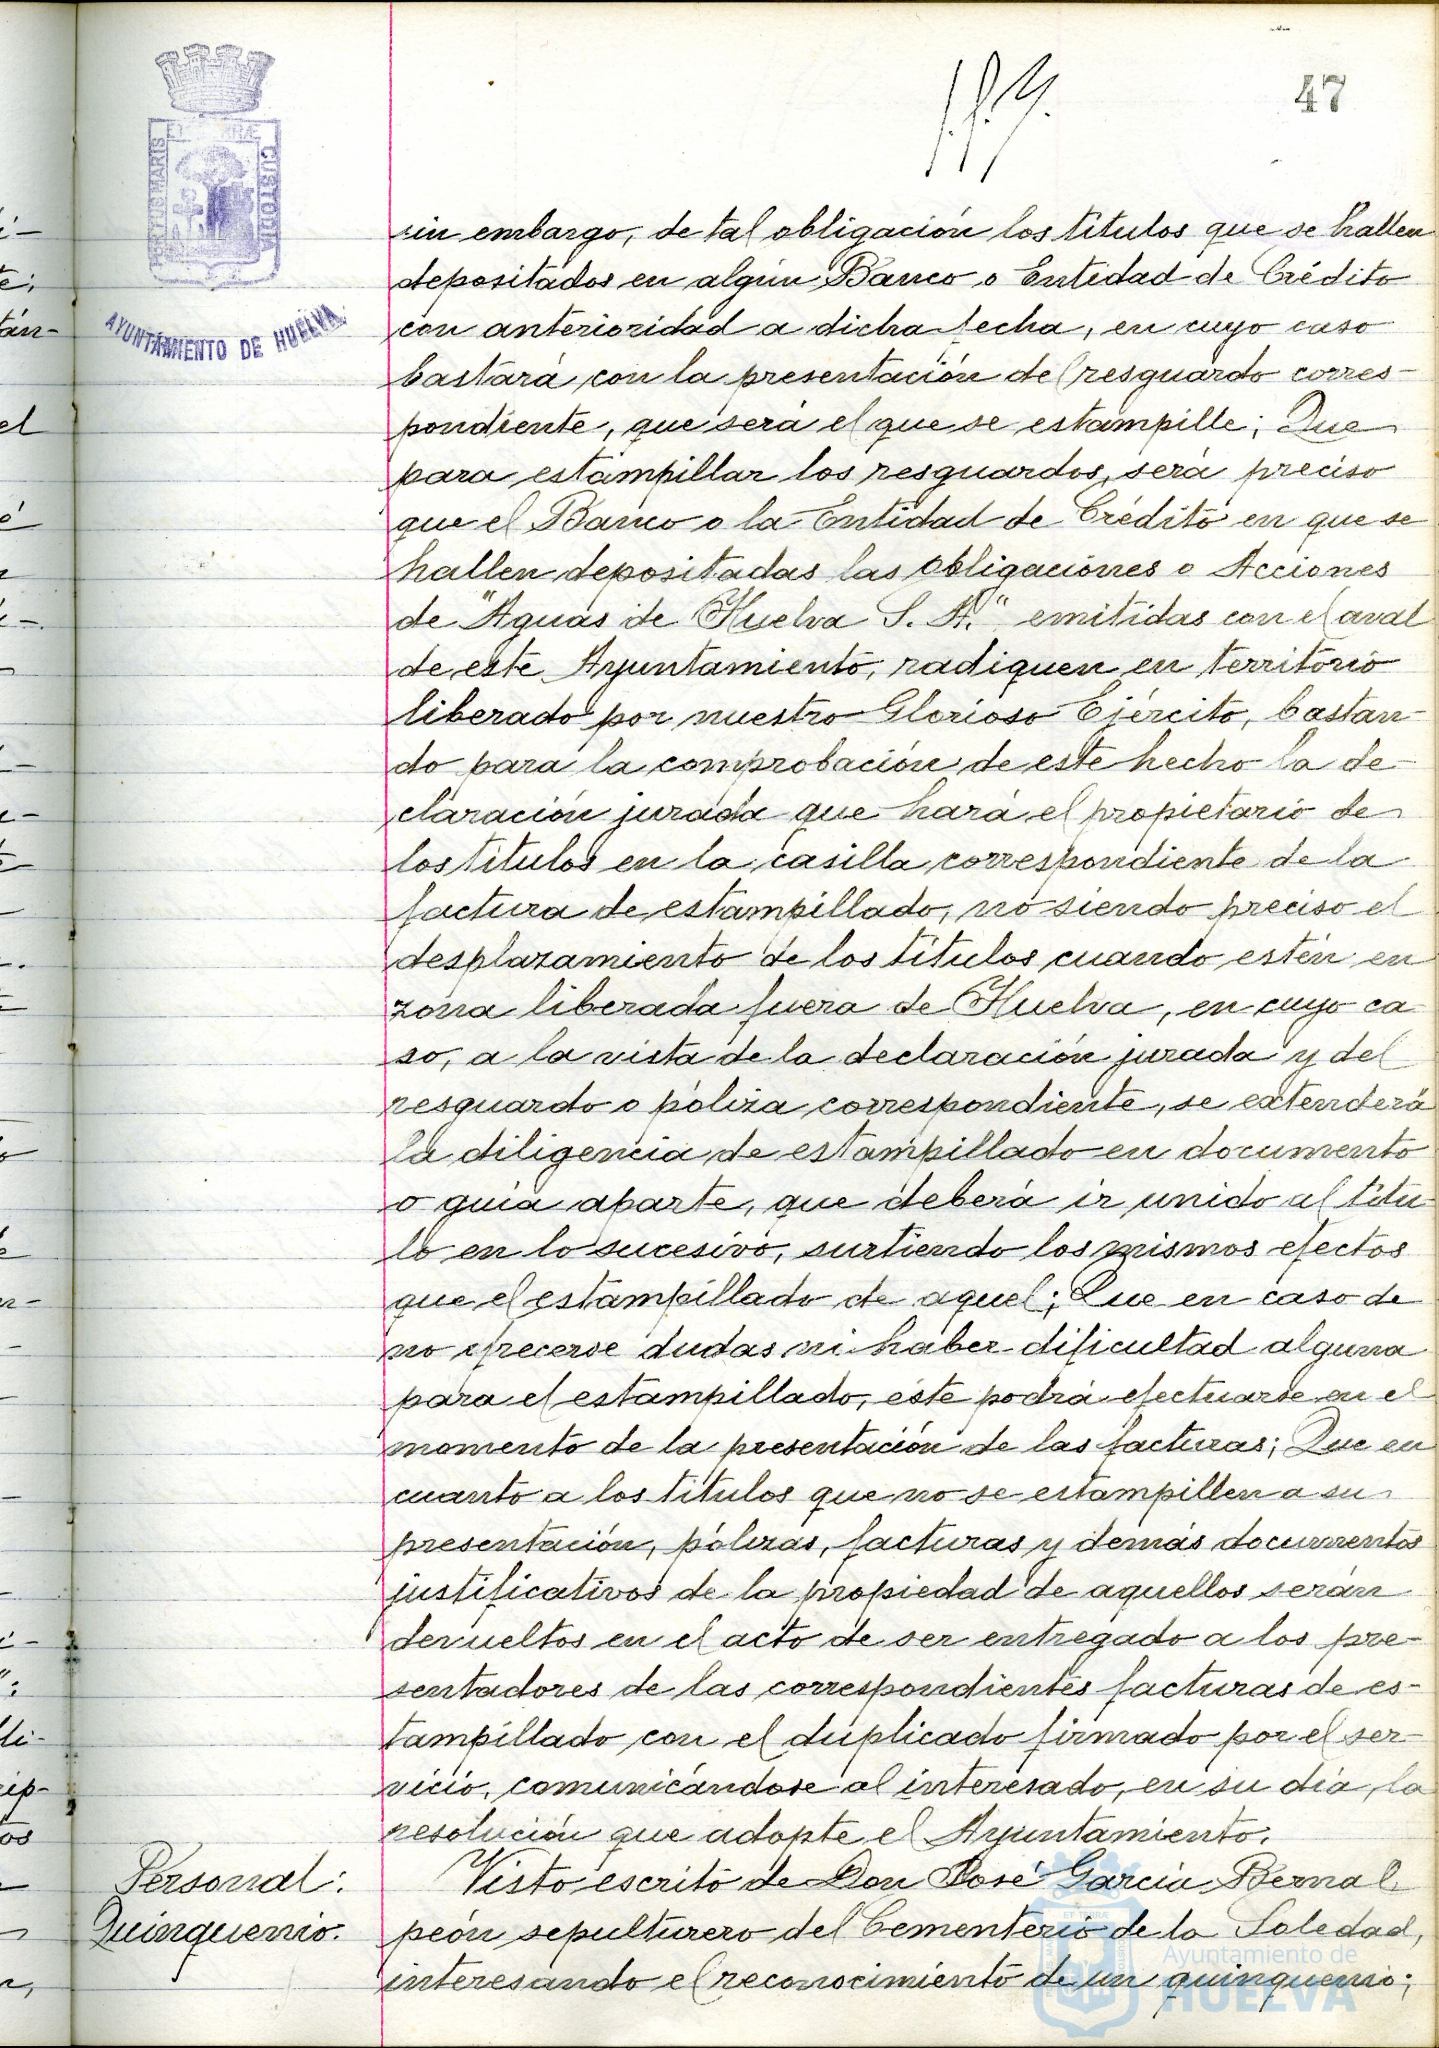 47
PORTUS MARIS
ET TERRÆ
CUSTODIA
AYUNTAMIENTO DE HUELVA
sin embargo, de tal obligación los títulos que se hallen
depositados en algún Banco o Entidad de Crédito
con anterioridad a dicha fecha, en cuyo caso
bastará con la presentación del resguardo corres-
pondiente, que será el que se estampille; Que
para estampillar los resguardos, será preciso
que el Banco o la Entidad de Crédito en que se
hallen depositadas las obligaciones o Acciones
de "Aguas de Huelva S. A." emitidas con el aval
de este Ayuntamiento, radiquen en territorio
liberado por nuestro Glorioso Ejército, bastan-
do para la comprobación de este hecho la de-
claración jurada que hará el propietario de
los títulos en la casilla correspondiente de la
factura de estampillado, no siendo preciso el
desplazamiento de los títulos cuando estén en
zona liberada fuera de Huelva, en cuyo ca
so, a la vista de la declaración jurada y del
resguardo o póliza correspondiente, se extenderá
la diligencia de estampillado en documento
o guía aparte, que deberá ir unido al títu-
lo en lo sucesivo, surtiendo los mismos efectos
que el estampillado de aquel; Que en caso de
no ofrecerse dudas ni haber dificultad alguna
para el estampillado, éste podrá efectuarse en el
momento de la presentación de las facturas; Que en
cuanto a los títulos que no se estampillen a su
presentación, pólizas, facturas y demás documentos
justificativos de la propiedad de aquellos serán
devueltos en el acto de ser entregado a los pre-
sentadores de las correspondientes facturas de es-
tampillado con el duplicado firmado por el ser-
vicio, comunicándose al interesado, en su día, la
resolución que adopte el Ayuntamiento.
Personal:
Quinquenio.
Visto escrito de Don José García Bernal,
peón sepulturero del Cementerio de la Soledad,
interesando el reconocimiento de un quinquenio;
Ayuntamiento de
HUELVA